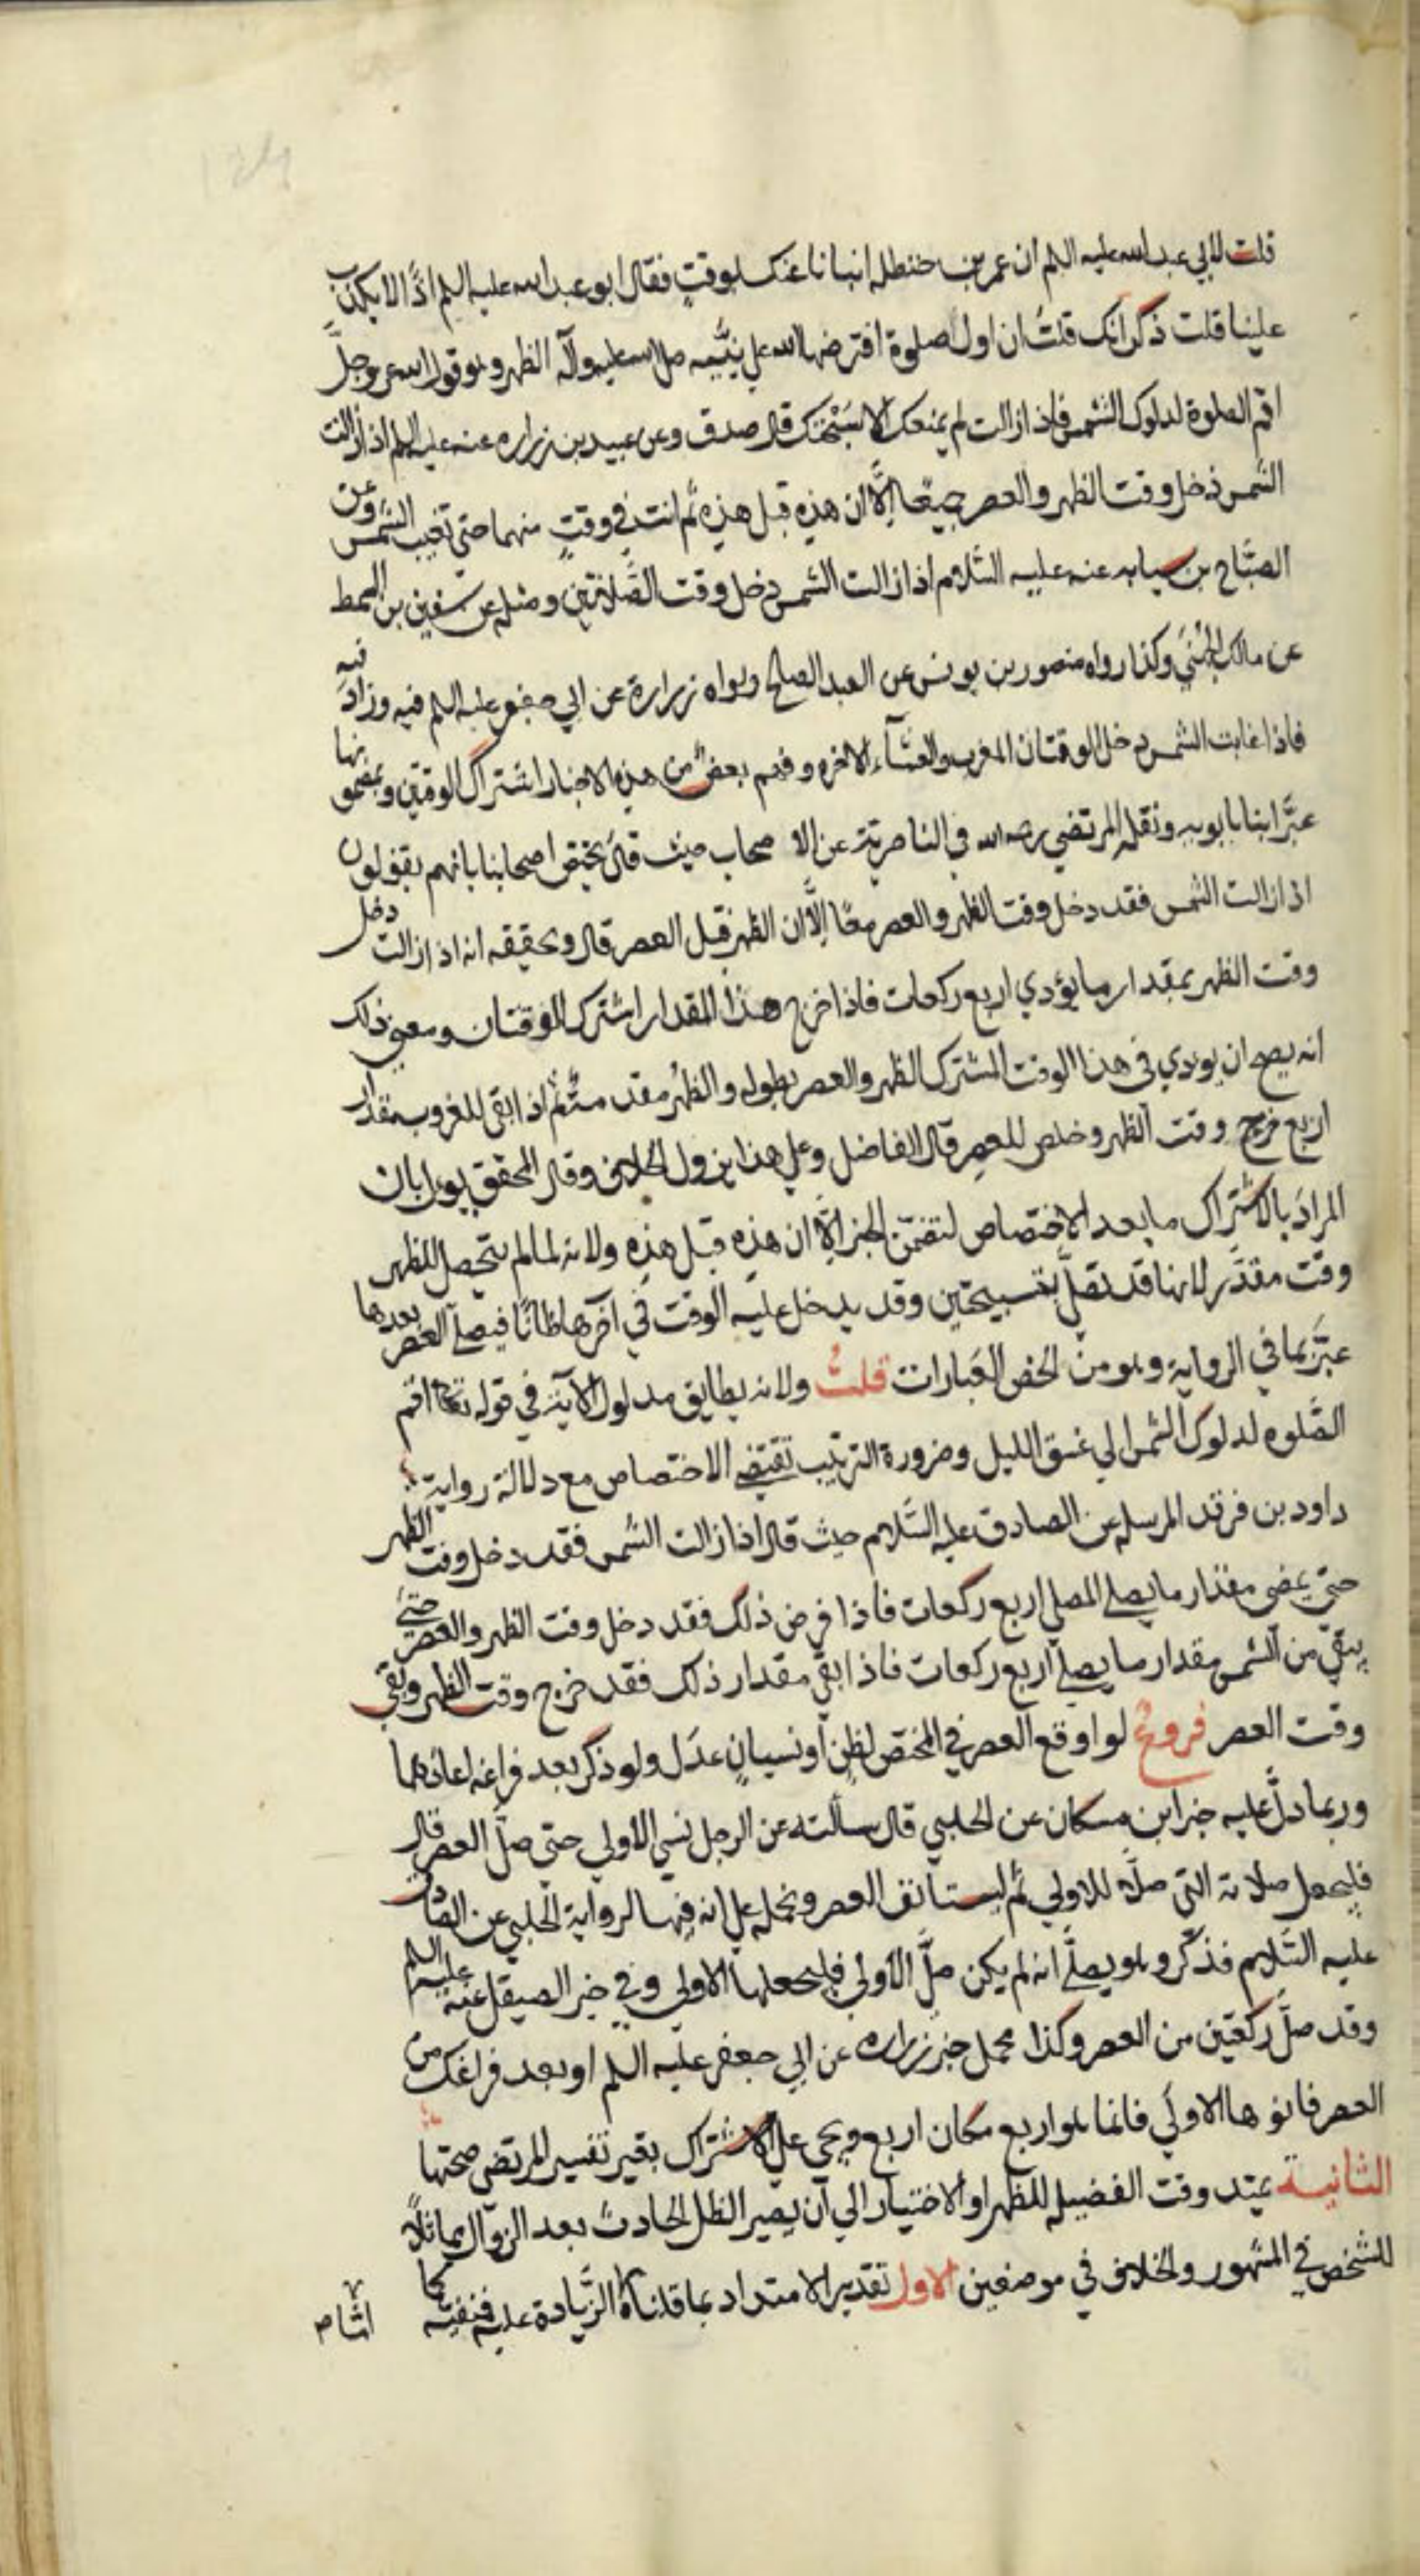 قلت لابي عبد الله عليه السلم ان عمر بن حنظله انبانا عنك بوقتٍ فقال ابو عبد الله عليه السلم اذًا لا يكذب
علينا قلت ذكر انك قلتُ ان اول صلوة افترضها الله علي نبيّه صلي الله عليه وآله الظهر وهو قول الله عز وجلّ
اقم الصلوة لدلوك الشمس فاذا زالت لم يمنعك الا سَبْحَتك قال صدق وعن عبيد بن زراره عنه عليه السلم اذا زالت
الشمس دخل وقت الظهر والعصر جميعًا الّا ان هذه قبل هذه ثم انت في وقتٍ منهما حتي تغيب الشمس وعن
الصبّاح بن سيابه عنه عليه السّلام اذا زالت الشمس دخل وقت الصّلاتين ومثله عن سفين بن السمط
عن مالك الجُهَنيّ وكذا رواه منصور بن يونس عن العبد الصالح ورواه زرارة عن ابي جعفر عليه السلم فيه وزاد فيه
فاذا غابت الشمس دخل الوقتان المغرب والعشآء الاخره وفهم بعضٌ من هذه الاخبار اشتراك الوقتين وبمضمونها
عبَّر ابنا بابويه ونقله المرتضي رحمه الله في الناصرية عن الا صحاب حيث قال يختص اصحابنا بانهم يقولون
اذا زالت الشمس فقد دخل وقت الظهر والعصر معًا الّا ان الظهر قبل العصر قال وتحقيقه انه اذا زالت دخل
وقت الظهر بمقدار ما يؤدي اربع ركعات فاذا خرج هذا المقدار اشترك الوقتان ومعني ذلك
انه يصح ان يودي في هذا الوقت المشترك الظهر والعصر بطوله والظُهْر مقدمة ثُم اذا بقي للغروب مقدار
اربع خرج وقت الظهر وخلص للعصر قال الفاضل وعلي هذا يزول الخلاف وقال المحقق يول بان
المراد بالاشتراك ما بعد الاختصاص لتضمّن الخبر الّا ان هذه قبل هذه ولانه لما لم يتحصل للظهر
وقت مقدَّر لانها قد تصلّ بتسبيحتين وقد يدخل عليه الوقت في آخرها ظانًا فيصلّ العصر بعدها
عبَّر بما في الرواية وهو من الخص العبارات قلتُ ولانه يطابق مدلول الآية في قوله تعا اقم
الصّلوه لدلوك الشمس الي غسق الليل وضرورة الترتيب تقتضي الاختصاص مع دلالة رواية
داود بن فرقد المرسله عن الصادق عليه السّلام حيث قال اذا زالت الشمس فقد دخل وقت الظهر
حتي يمضي مقدار ما يصلي المصلي اربع ركعات فاذا فرض ذلك فقد دخل وقت الظهر والعصر حتي
يبقي من الشمس مقدار ما يصلي اربع ركعات فاذا بقي مقدار ذلك فقد خرج وقت الظهر وبقي
وقت العصر فروعٌ لو اوقع العصر في المختص لظنٍ او نسيانٍ عدَل ولو ذكر بعد فراغه اعادهما
وربما دلّ عليه خبر ابن مسكان عن الحلبي قال سالته عن الرجل نسي الاولي حتي صلّ العصر قال
فليجعل صلاته التي صلّا للاولي ثم ليستانف العصر ونحمله علي انه فيها لرواية الحلبي عن الصادق
عليه السّلام فذكر وهو يصلّي انه لم يكن صلّ الأولي فليجعلها الاولي وفي خبر الصيقل عنه عليه السلم
وقد صلّ ركعتين من العصر وكذا محمل خبر زراره عن ابي جعفر عليه السلم او بعد فراغك من
العصر فانوها الاولي فانما هو اربع مكان اربع ويجي علي الاشتراك بغير تفسير المرتضي صحتها
الثانية يمتد وقت الفضيله للظهر او الاختيار الي ان يصير الظل الحادث بعد الزوال مماثلًا
للشخص في المشهور والخلاف في موضعين الاول تقدير الامتداد بما قلناه الزّيادة عليه فنفيته كما
اشا م